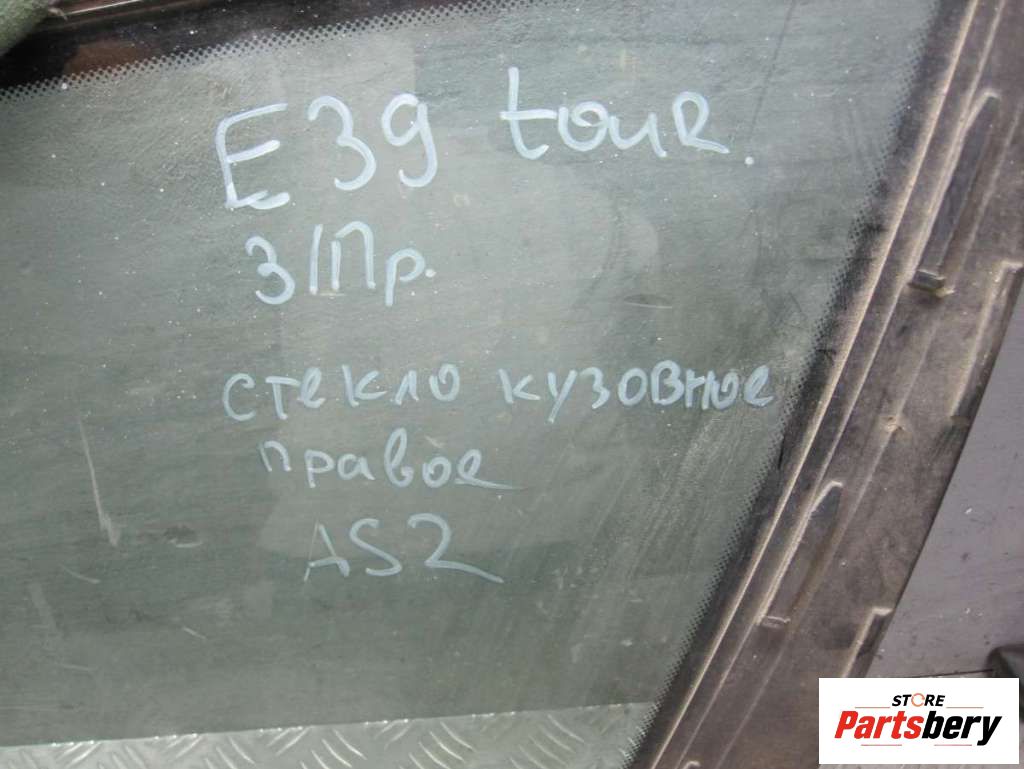 E39 touR.
З/Пр.
стекло кузовное
правое
AS2
STORE
Partsbery